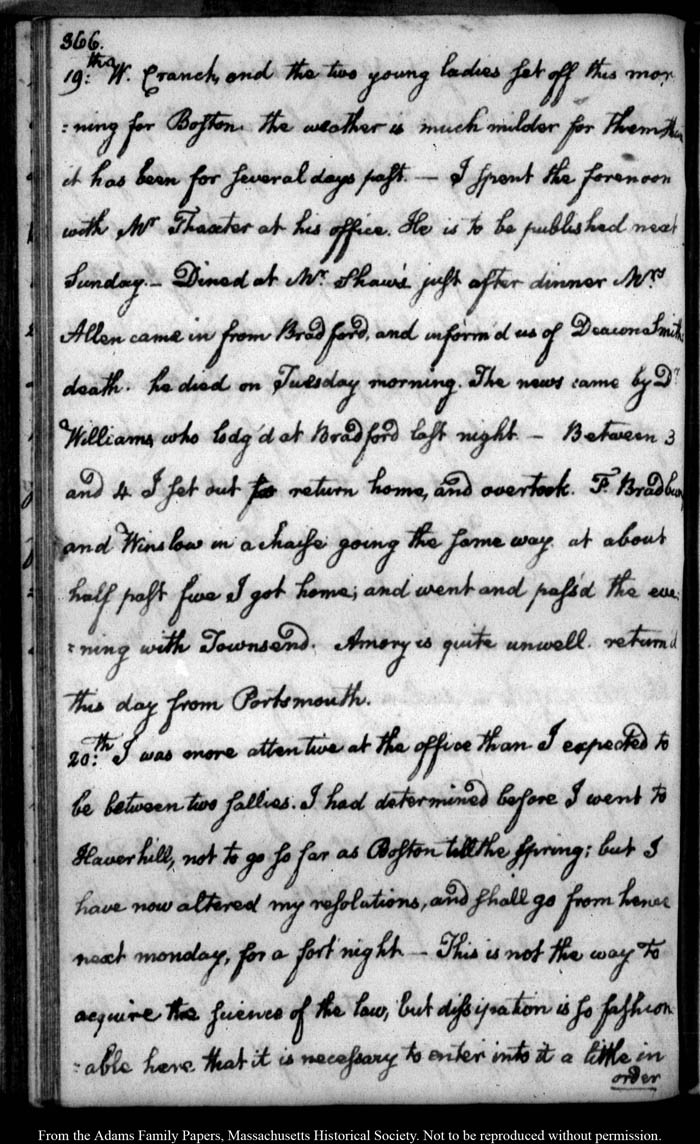 366.
19:th W. Cranch, and the two young ladies set off this mor
:ning for Boston. the weather is much milder for them than
it has been for several days past. — I spent the forenoon
with Mr Thaxter at his office. He is to be published next
Sunday. — Dined at Mr. Shaw's, just after dinner Mrs
Allen came in from Bradford, and inform'd us of Deacon Smith's
death. he died on Tuesday morning. The news came by Dr.
Williams, who lodg'd at Bradford last night. — Between 3
and 4. I set out to return home, and overtook. F. Bradbury
and Winslow in a chaise going the same way. at about
half past five I got home; and went and pass'd the eve
:ning with Townsend. Amory is quite unwell. return'd
this day from Portsmouth.
20:th I was more attentive at the office than I expected to
be between two sallies. I had determined before I went to
Haverhill, not to go so far as Boston till the spring; but I
have now altered my resolutions, and shall go from hence
next monday, for a fortnight — This is not the way to
acquire the science of the law, but dissipation is so fashion
:able here that it is necessary to enter into it a little in
order
From the Adams Family Papers, Massachusetts Historical Society. Not to be reproduced without permission.